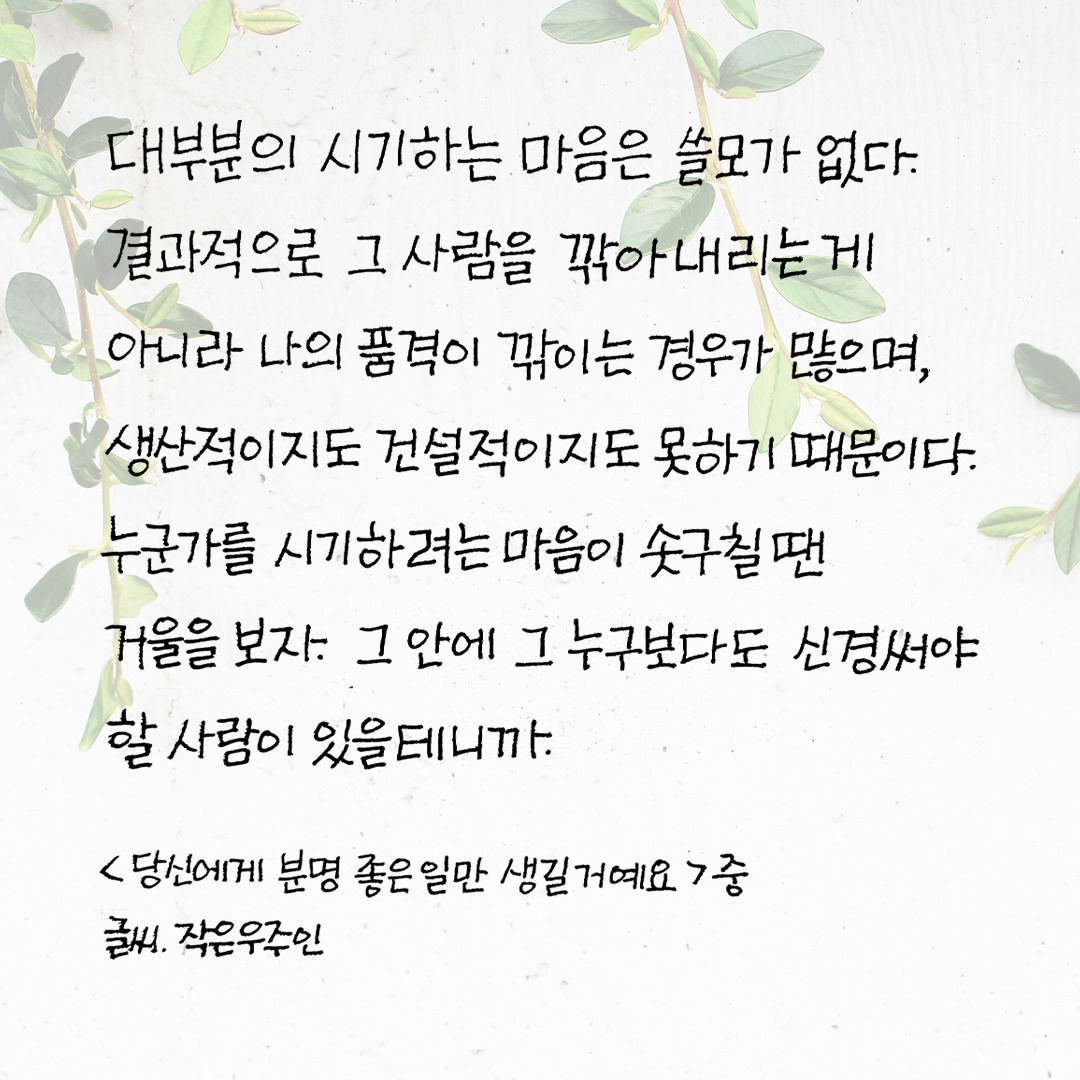 대부분의 시기하는 마음은 쓸모가 없다.
결과적으로 그 사람을 깎아내리는 게
아니라 나의 품격이 깎이는 경우가 많으며,
생산적이지도 건설적이지도 못하기 때문이다.
누군가를 시기하려는 마음이 솟구칠 땐
거울을 보자. 그 안에 그 누구보다도 신경써야
할 사람이 있을테니까.
<당신에게 분명 좋은 일만 생길 거예요> 중
글씨. 작은우주인